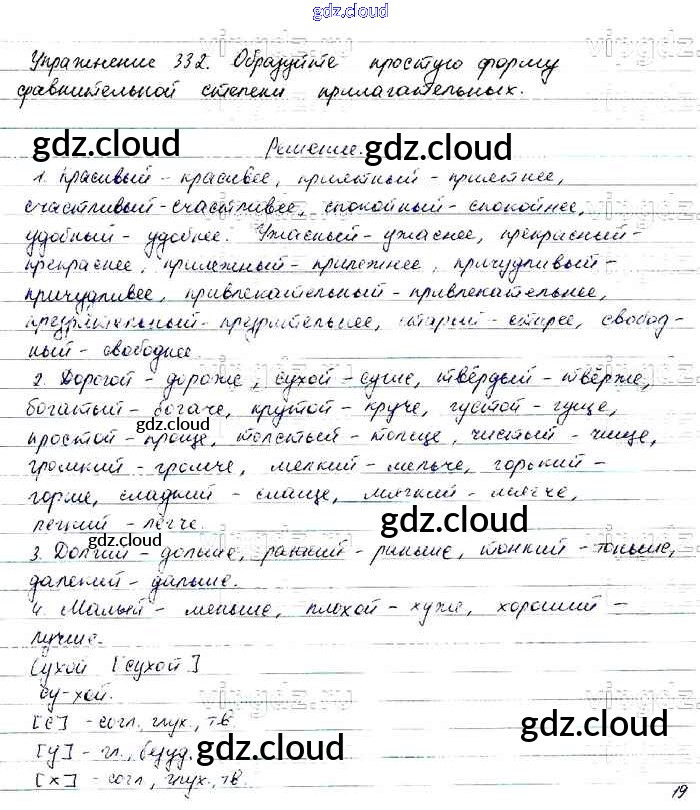 gdz.cloud
Упражнение 332. Образуйте простую форму
сравнительной степени прилагательных.
gdz.cloud
gdz.cloud
Решение.
1. Красивый - красивее, приятный - приятнее,
счастливый - счастливее, спокойный - спокойнее,
удобный - удобнее. Ужасный - ужаснее, прекрасный -
прекраснее, прилежный - прилежнее, причудливый -
причудливее, привлекательный - привлекательнее,
презрительный - презрительнее, старый - старее, свобод-
ный - свободнее.
2. Дорогой - дороже, сухой - суше, твёрдый - твёрже,
богатый - богаче, крутой - круче, густой - гуще,
gdz.cloud
простой - проще, толстый - толще, чистый - чище,
громкий - громче, мелкий - мельче, горький -
горше, сладкий - слаще, мягкий - мягче,
легкий - легче.
gdz.cloud
gdz.cloud
3. Долгий - дольше, ранний - раньше, тонкий - тоньше,
далекий - дальше.
4. Малый - меньше, плохой - хуже, хороший -
лучше.
Сухой [сухой]
Су-хой.
[с] - согл., глух., тв.
gdz.cloud
[у] - гл., безуд.
gdz.cloud
[х] - согл., глух., тв.
gdz.cloud
19